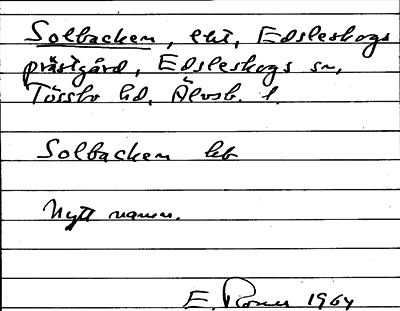 Solbacken, lht, Edsleskogs
prästgård, Edsleskogs sn,
Tössbo hd, Älvsb. l.
Solbacken lht
Nytt namn.
E. Rosen 1964